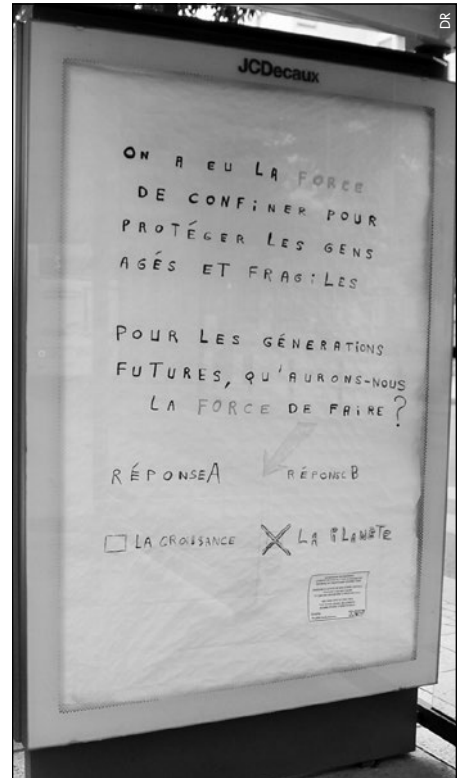 DR
JCDecaux
ON A EU LA FORCE
DE CONFINER POUR
PROTÉGER LES GENS
AGÉS ET FRAGILES
POUR LES GÉNERATIONS
FUTURES, QU'AURONS-NOUS
LA FORCE DE FAIRE ?
RÉPONSE A RÉPONSE B
LA CROISSANCE LA PLANÈTE